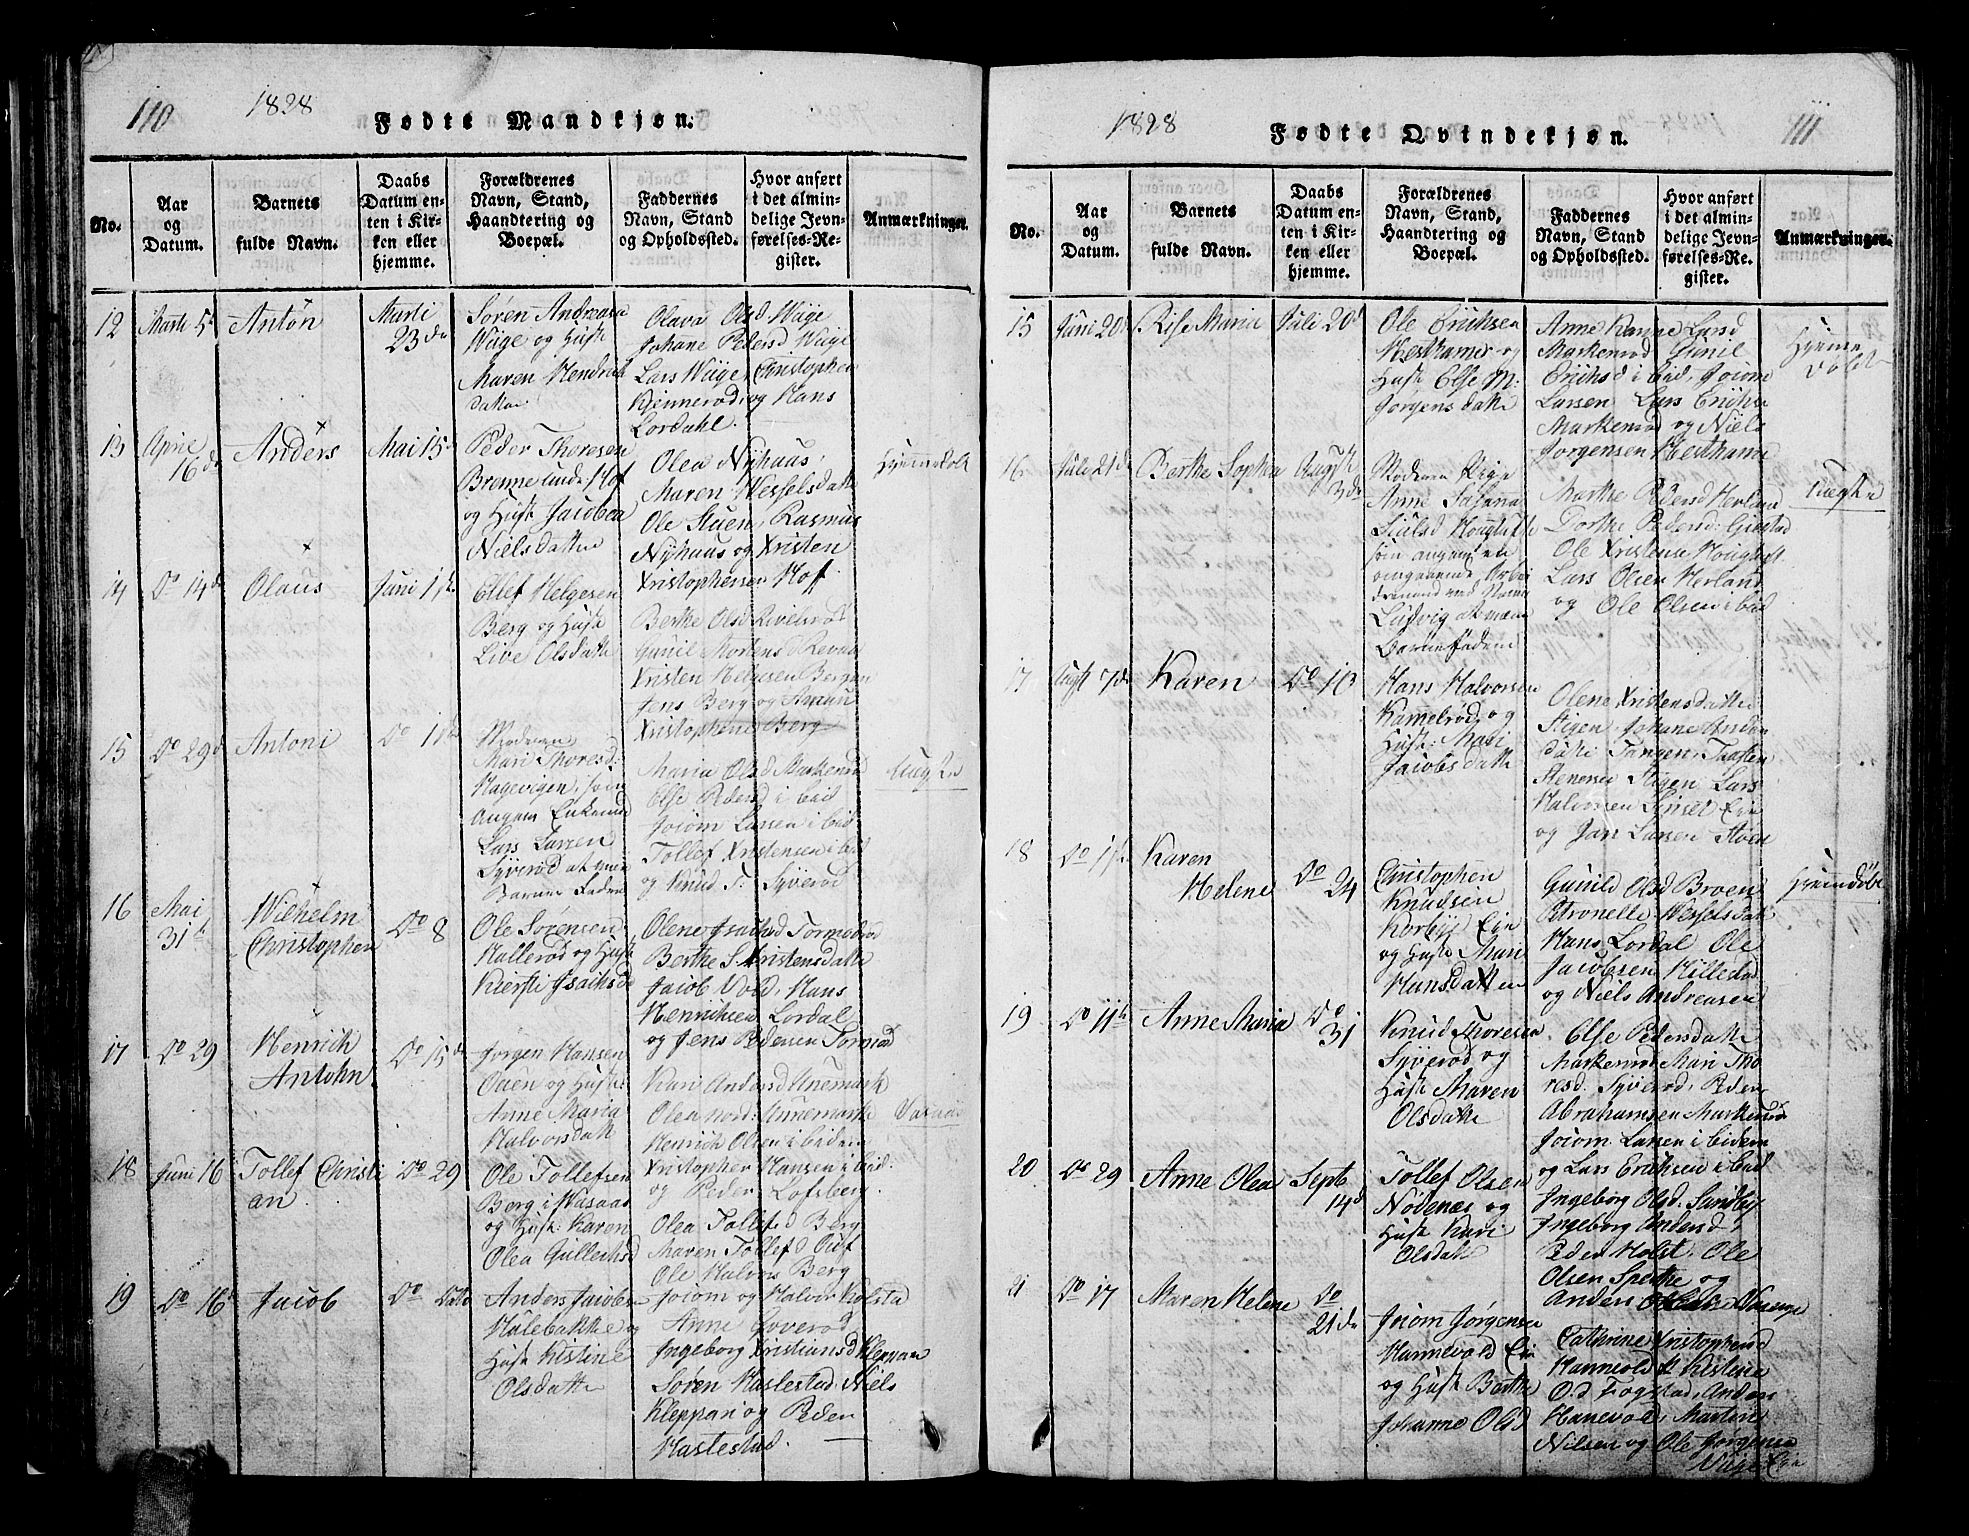 110
1828
Fødte Mandkjøn.
No.
Aar
og
Datum.
Barnets
fulde Navn.
Daabs
Datum en-
ten i Kir-
ken eller
hjemme.
Forældrenes
Navn, Stand,
Haandtering og
Boepæl.
Faddernes
Navn, Stand
og Opholdssted.
Hvor anført
i det almin-
delige Jevn-
førelses-Re-
gister.
Anmærkninger.
12
Marti 5
Anton
Marti
23de
Søren Andreasen
Wiige og Hust
Maren Hendrik
datter
Olava Olsd Wiige
Johane Pedersd Wiige
Lars Wiige, Christophen
Kjennerød og Hans
Lordahl.
13
Aprie
16de
Anders
Mai 15
Peder Thoresen
Brenne unde Hof
og Hust Jacobea
Nielsdatter
Olea Nyhaus
Maren Wesselsdatte
Ole Stuen, Rasmus
Nyhaus og Xristen
Xristophersen Hof
Hjemedøbt
14
Do 14d
Olaus
Juni 1
Ellef Helgesen
Berg og Hust
Live Olsdatte
Berthe Olsd
Gunil Mortens
Xristen Helgesen Bergan
Jens Berg og
Xristophersen Berg
15
Do 29d
Antoni
Do 1
Moderen
Mari Thoresd:
Hagevigen, som
Angav Enkemd
Lars Larsen
Syverød at være
Barne Faderen
Maria Olsd Markerud
Else Pedersd i bid
Joiom Larsen i bid
Tollef Xristensen i bid
og Knud T. Syverød
uægte
16
Mai
31
Wilhelm
Christopher
Do 8
Ole Sørensen
Hallerød og Hust
Kiersti Isachsd
Olene Isachsd Tormodrød
Berthe Xristensdatte
Jacob Vold, Hans
Henrichsen Lordal
og Jens Pedersen Tormod
17
Do 29
Henrich
Antohn
Do 15d
Jørgen Hansen
og Hust
Anne Maria
Halvorsdatt
Kari Andersd Unemark
Olea
Henrich Olsen i bidem
Xristopher Hansen i bid.
og Peder Lofsberg.
Vasaas
18
Juni 16
Tollef Christi
an
Do 29
Ole Tollefsen
Berg i Wasaas
og Hust Karen
Olea Gullechsd
Olea Tollefsd Berg
Maren Tollefsd
Ole Halvors Berg
Joiom og Halvor Kolstad
19
Do 16
Jacob
Do Dito
Anders Jacobsen
Holebakke og
Hust Kistine
Olsdatte
Anne Syverød
Ingeborg Xristiansd Kleppan
Søren Haslestad, Niels
Kleppan og Peder
Haslestad.
1828
Fødte Qvindekjøn.
111
No.
Aar
og
Datum.
Barnets
fulde Navn.
Daabs
Datum en-
ten i Kir-
ken eller
hjemme.
Forældrenes
Navn, Stand,
Haandtering og
Boepæl.
Faddernes
Navn, Stand
og Opholdssted.
Hvor anført
i det almin-
delige Jevn-
førelses-Re-
gister.
Anmærkninger.
15
Juni 20
Rise Maria
Juli 20
Ole Erichsen
Hesthamer og
Hust Else M:
Jørgensdatte
Anne Larsd
Markerud Gunil
Erichsd i bid, Joiom
Larsen Lars Erichse
Markerud og Niels
Jørgensen Hesthame
Hjemme
døbt
16
Juli 21d
Berthe Sophia
August
3de
Moderen Pige
Anne Susanna
som angav en
omgaaende Arbei
dsmand ved Navn
Ludvig at være
Barnefaderen
Marthe Pedersd Herland
Dorthe Pedersd:
Ole Xristensen
Lars Olsen Herland
og Ole Olsen i bid
Uægte
17
Augst 7de
Karen
Do 10
Hans Halvorsen
Kamelrød og
Hust: Mari
Jacobsdatte
Olene Xristensdatte
Stigen, Johane Ander
datte Tangen, Torsten
Stenersen Stigen Lars
Halvorsen
og Jan Larsen Stoen
18
Do 1
Karen
Helene
Do
24
Christophen
Knudsen
Korbye Eje
og Hust Mari
Hansdatten
Gunild Olsd Broen
Petronelle Wesselsdatt
Hans Lordal Ole
Jacobsen Hillestad
og Niels Andreasen
Hjemdøbt
19
Do 11
Anne Maria
Do
31
Knud Thoresen
Syverød og
Hust Maren
Olsdatte
Else Pedersdatte
Markerud Mari Tho
resd. Syverød, Peder
Abrahamsen Markerud
Joiom Larsen i bidem
og Lars Erichsen i bid
20
Do 29
Anne Olea
Septb
14d
Tollef Olsen
Nødenæs og
Hust Kari
Olsdatte
Ingeborg Olsd. Sundbye
Ingeborg Andersd
Peder Holst. Ole
Olsen Spetke og
21
Do 17
Maren Helene
Do
21de
Joiom Jørgensen
Hannevold Eie
og Hust Berthe
Johanne Olsd
Cathrine Xristophersd
Hannevold Kistine
Fogstad, Anders
Hanevold, Martin
Nilsen og Ole Jørgensen